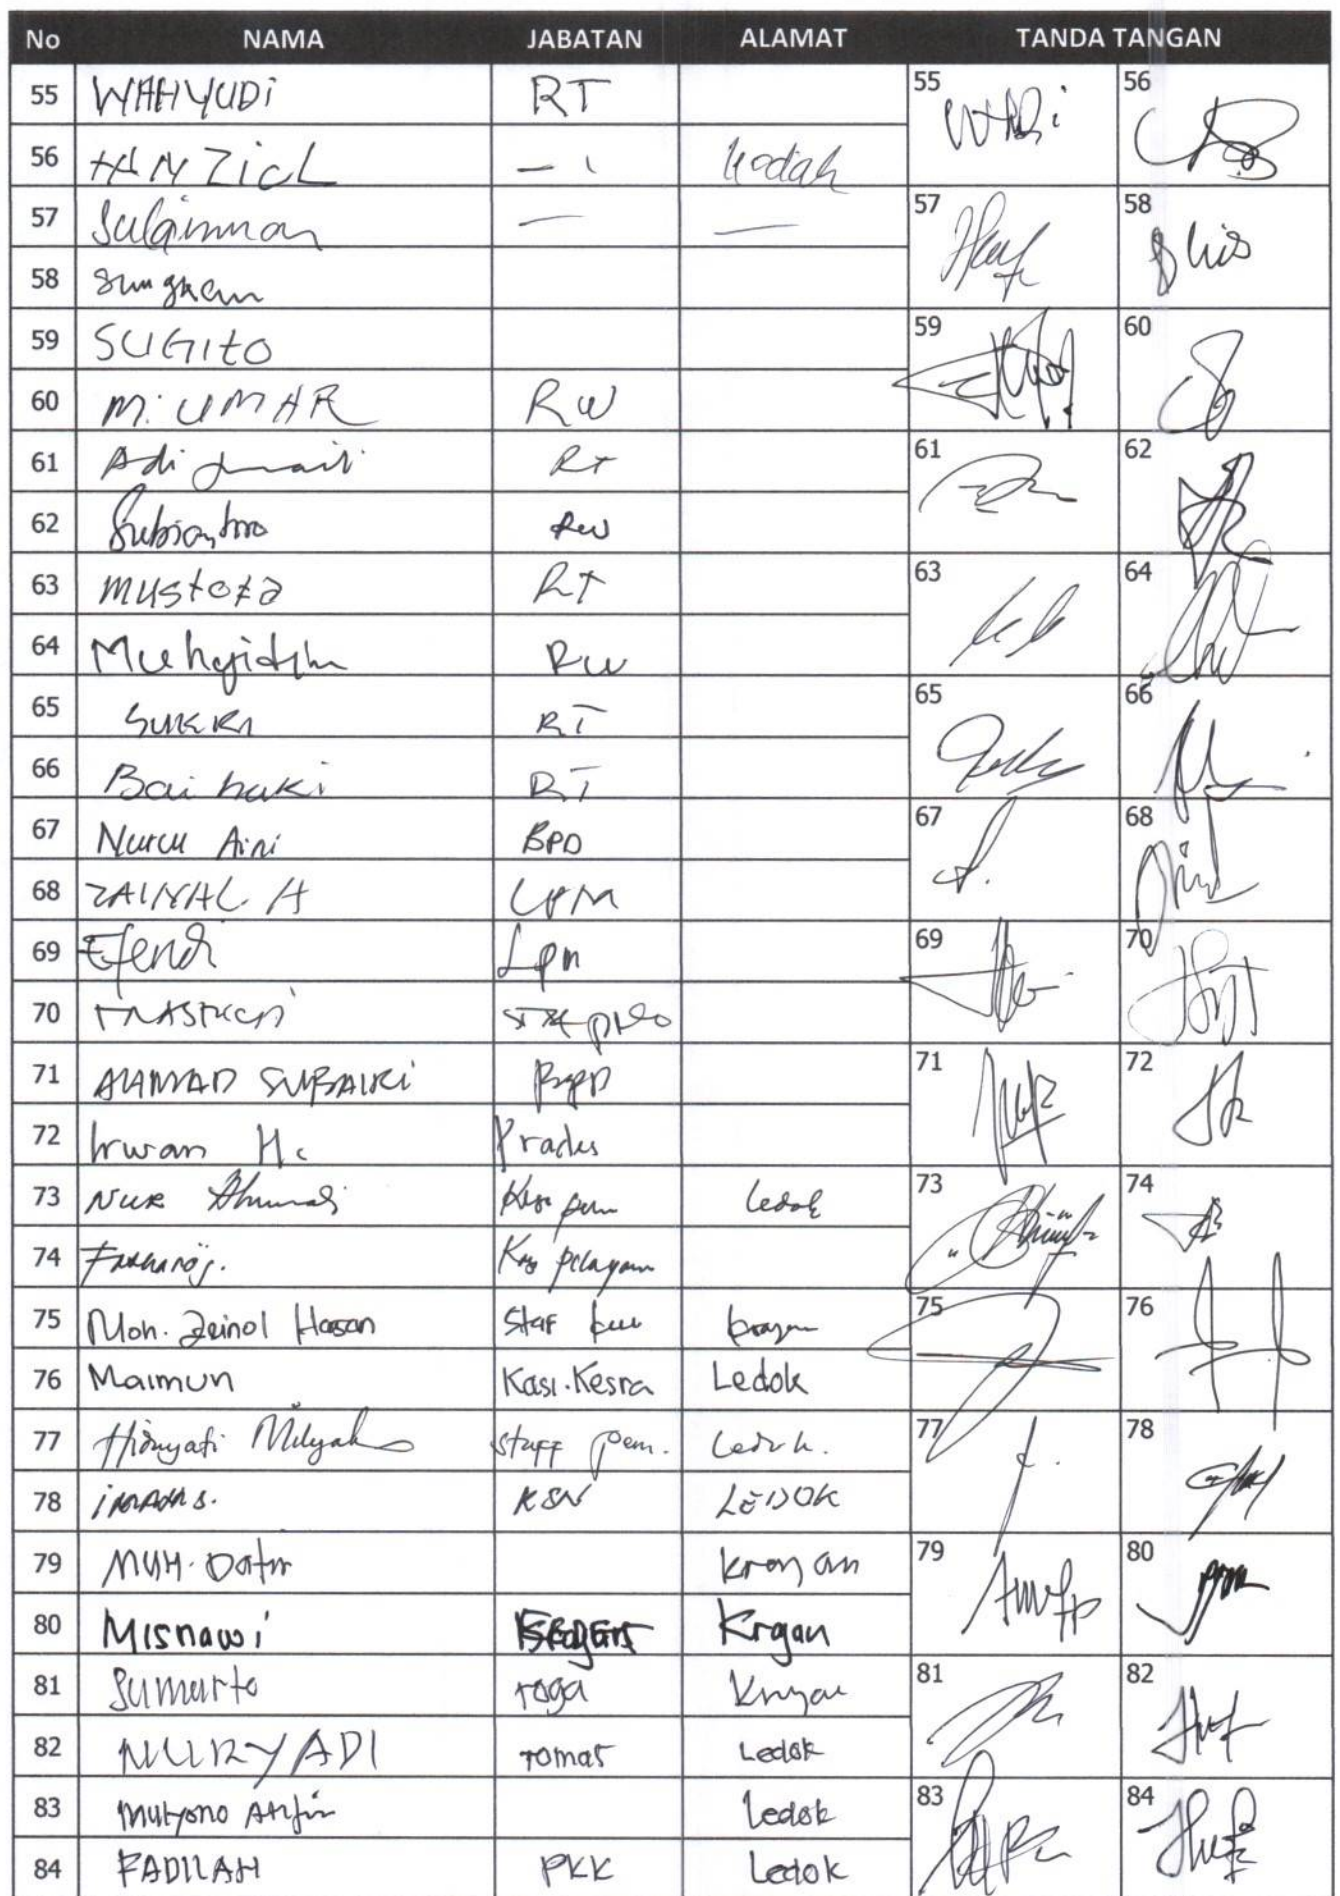 No NAMA JABATAN ALAMAT TANDA TANGAN
55 WAHYUDi RT 55 56
56 HANZICL
57 Sulaimman — — 57 58
58 sungkem
59 SUGITO 59 60
60 M. UMAR RW
61 Adi Junaili RT 61 62
62 Subiantoro RW
63 mustofa RT 63 64
64 RW
65 SUKRI RT 65 66
66 Baihaki RT
67 Nurul Aini BPD 67 68
68 ZAINAL. A LPM
69 Efendi Lpm 69 70
70
71 AHMAD SUBAIKI BPD 71 72
72 Irwan H. Prades
73 Nur Ledok 73 74
74 Pelayanan
75 Moh. Zeinol Hasan Staf 75 76
76 Maimun Kasi. Kesra Ledok
77 Hidayati staff pem. Ledok. 77 78
78 LEDOK
79 MUH. Krajan 79 80
80 Misnawi Krajan
81 Sumarto Toga Krajan 81 82
82 NURYADI Tomas Ledok
83 Mulyono Arifin Ledok 83 84
84 FADILAH PKK Ledok